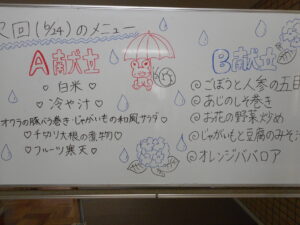 次回(6/24)のメニュー
A献立
♡白米♡
♡冷や汁♡
オクラの豚バラ巻き じゃがいもの和風サラダ
♡千切り大根の煮物♡
♡フルーツ寒天♡
B献立
◎ごぼうと人参の五目
◎あじのしそ巻き
◎お花の野菜炒め
◎じゃがいもと豆腐のみそ
◎オレンジババロア